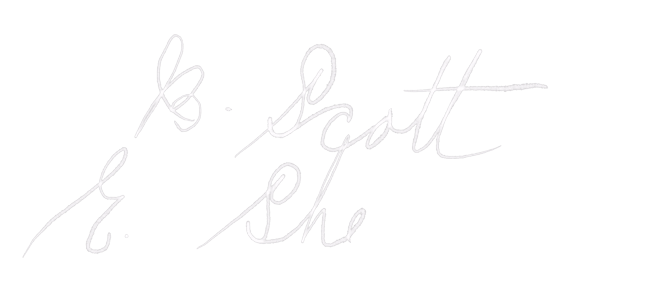 B. Scott
E. She